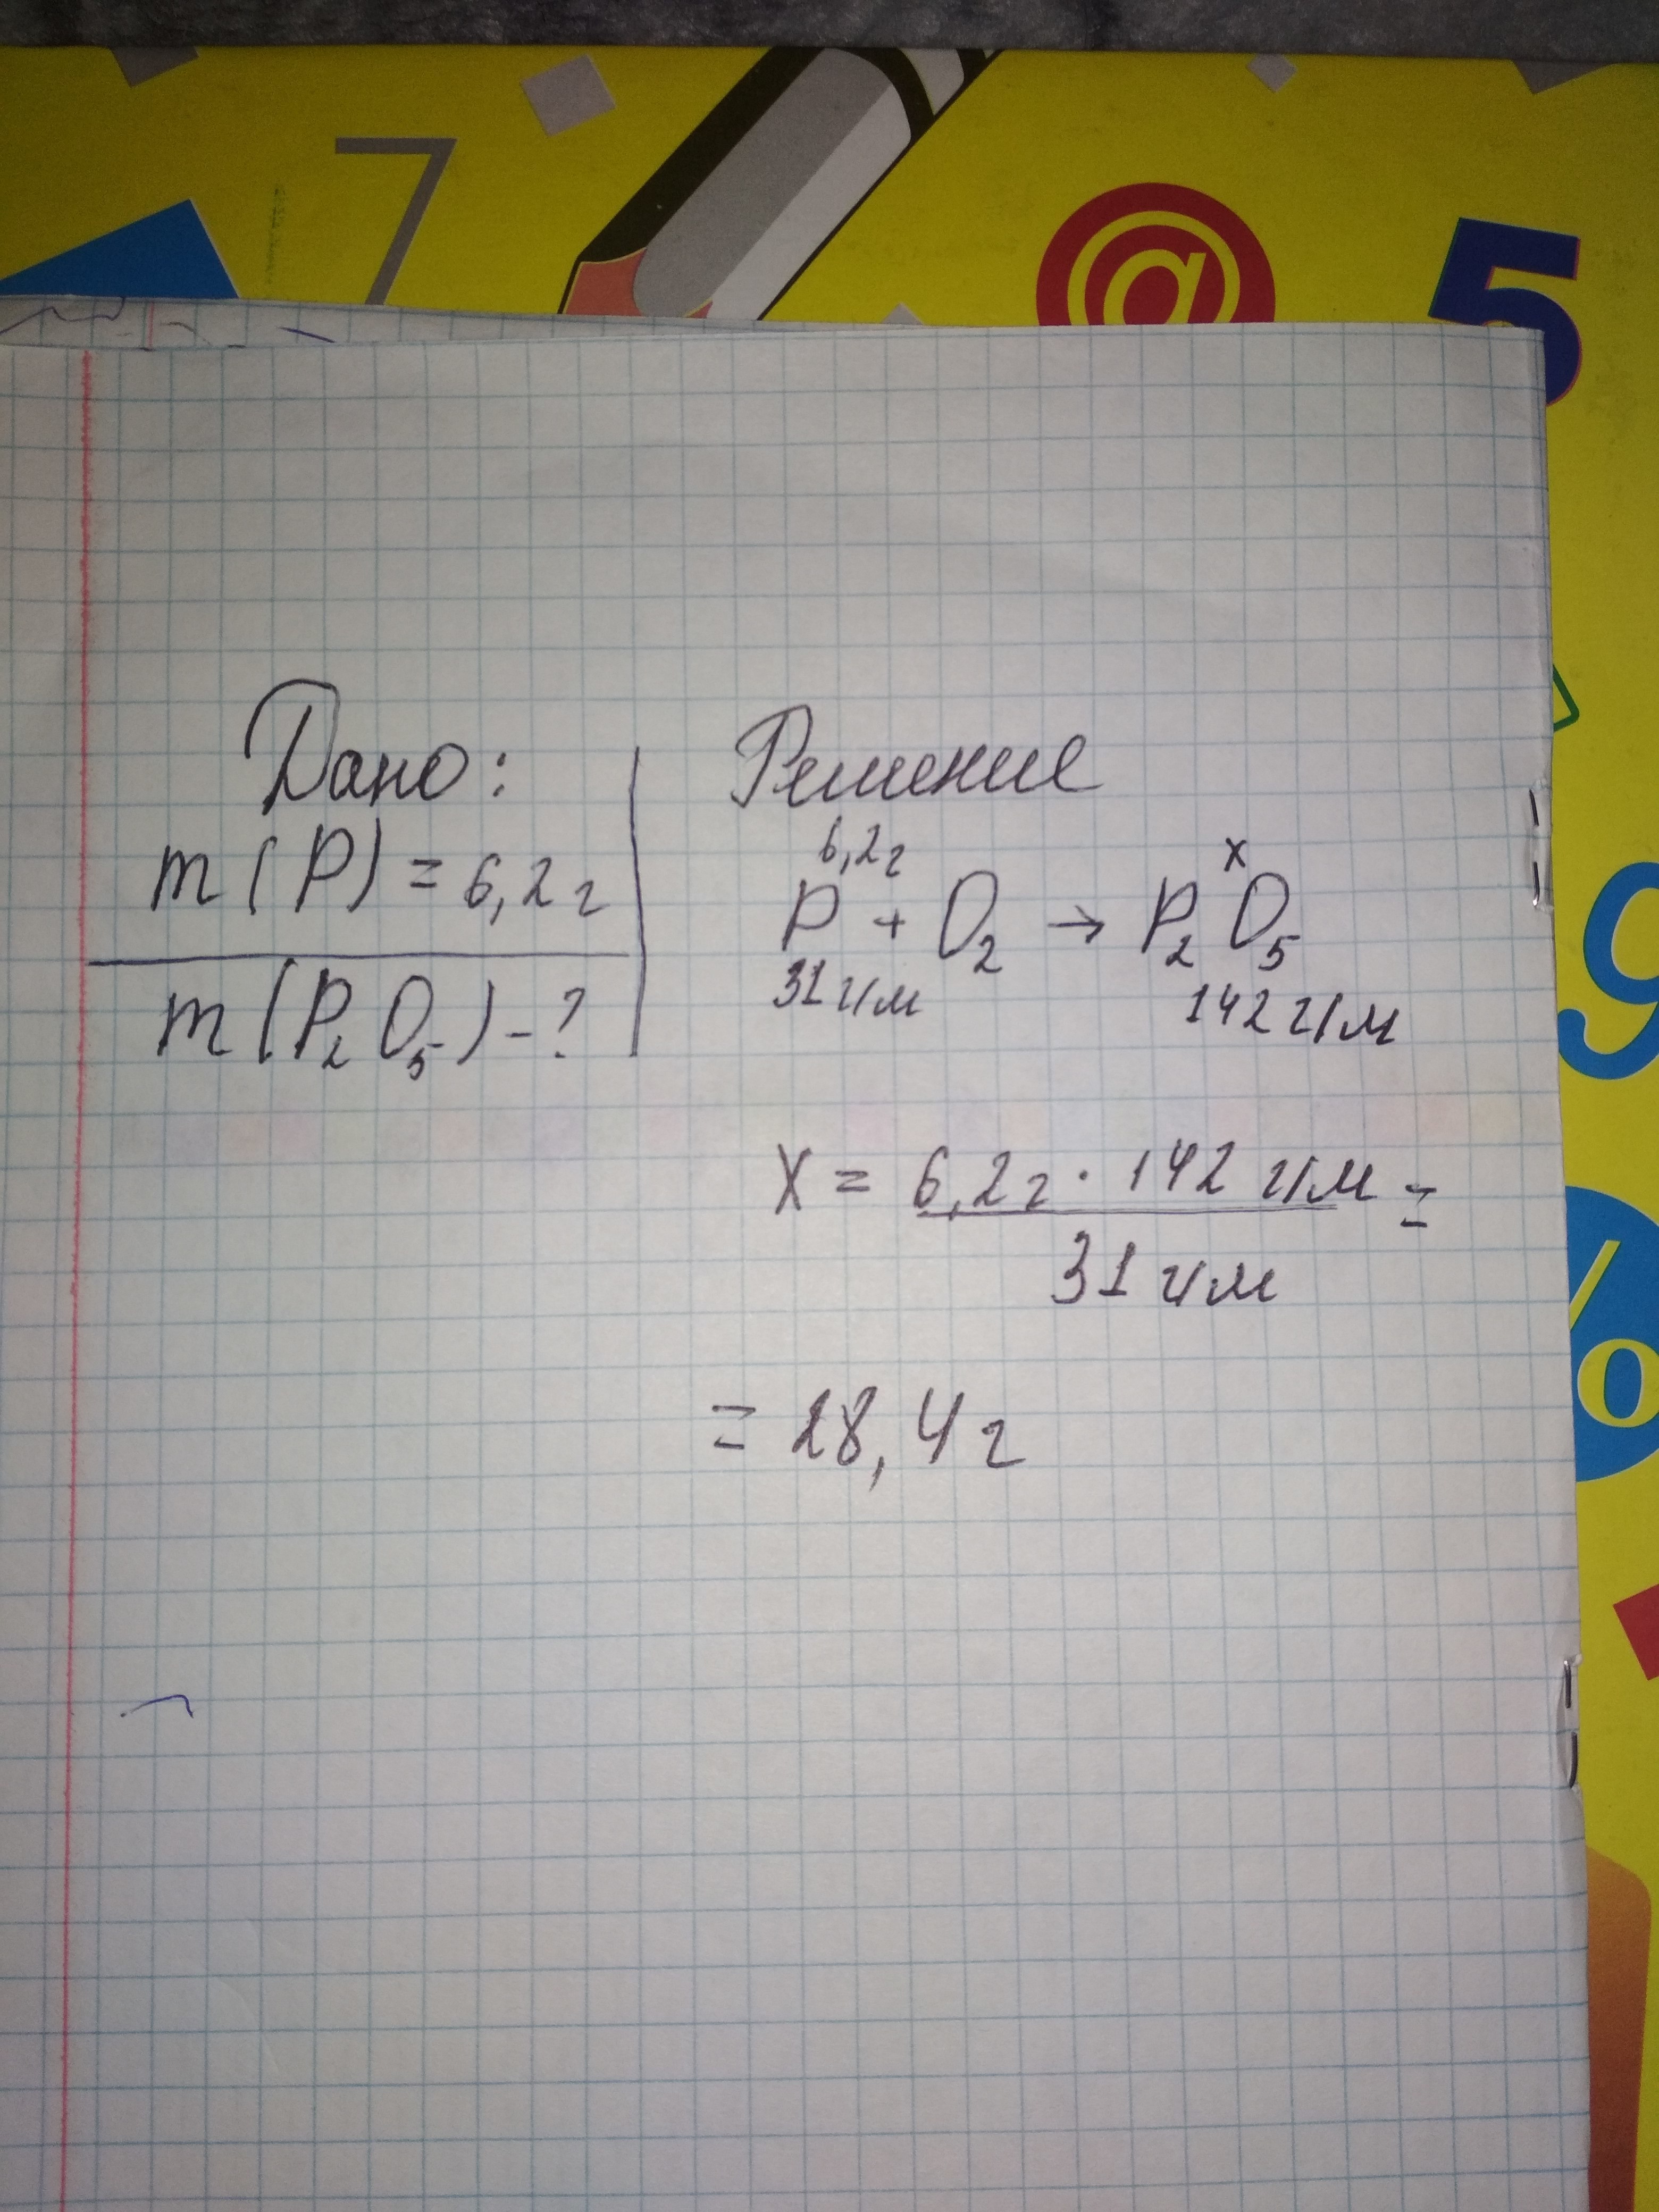 7
@
5
Дано:
m(P)=6,2г
m(P₂O₅)-?
Решение
6,2г x
P + O₂ → P₂O₅
31 г/м 142 г/м
X = 6,2г · 142 г/м =
31 г/м
= 28,4г
9
%